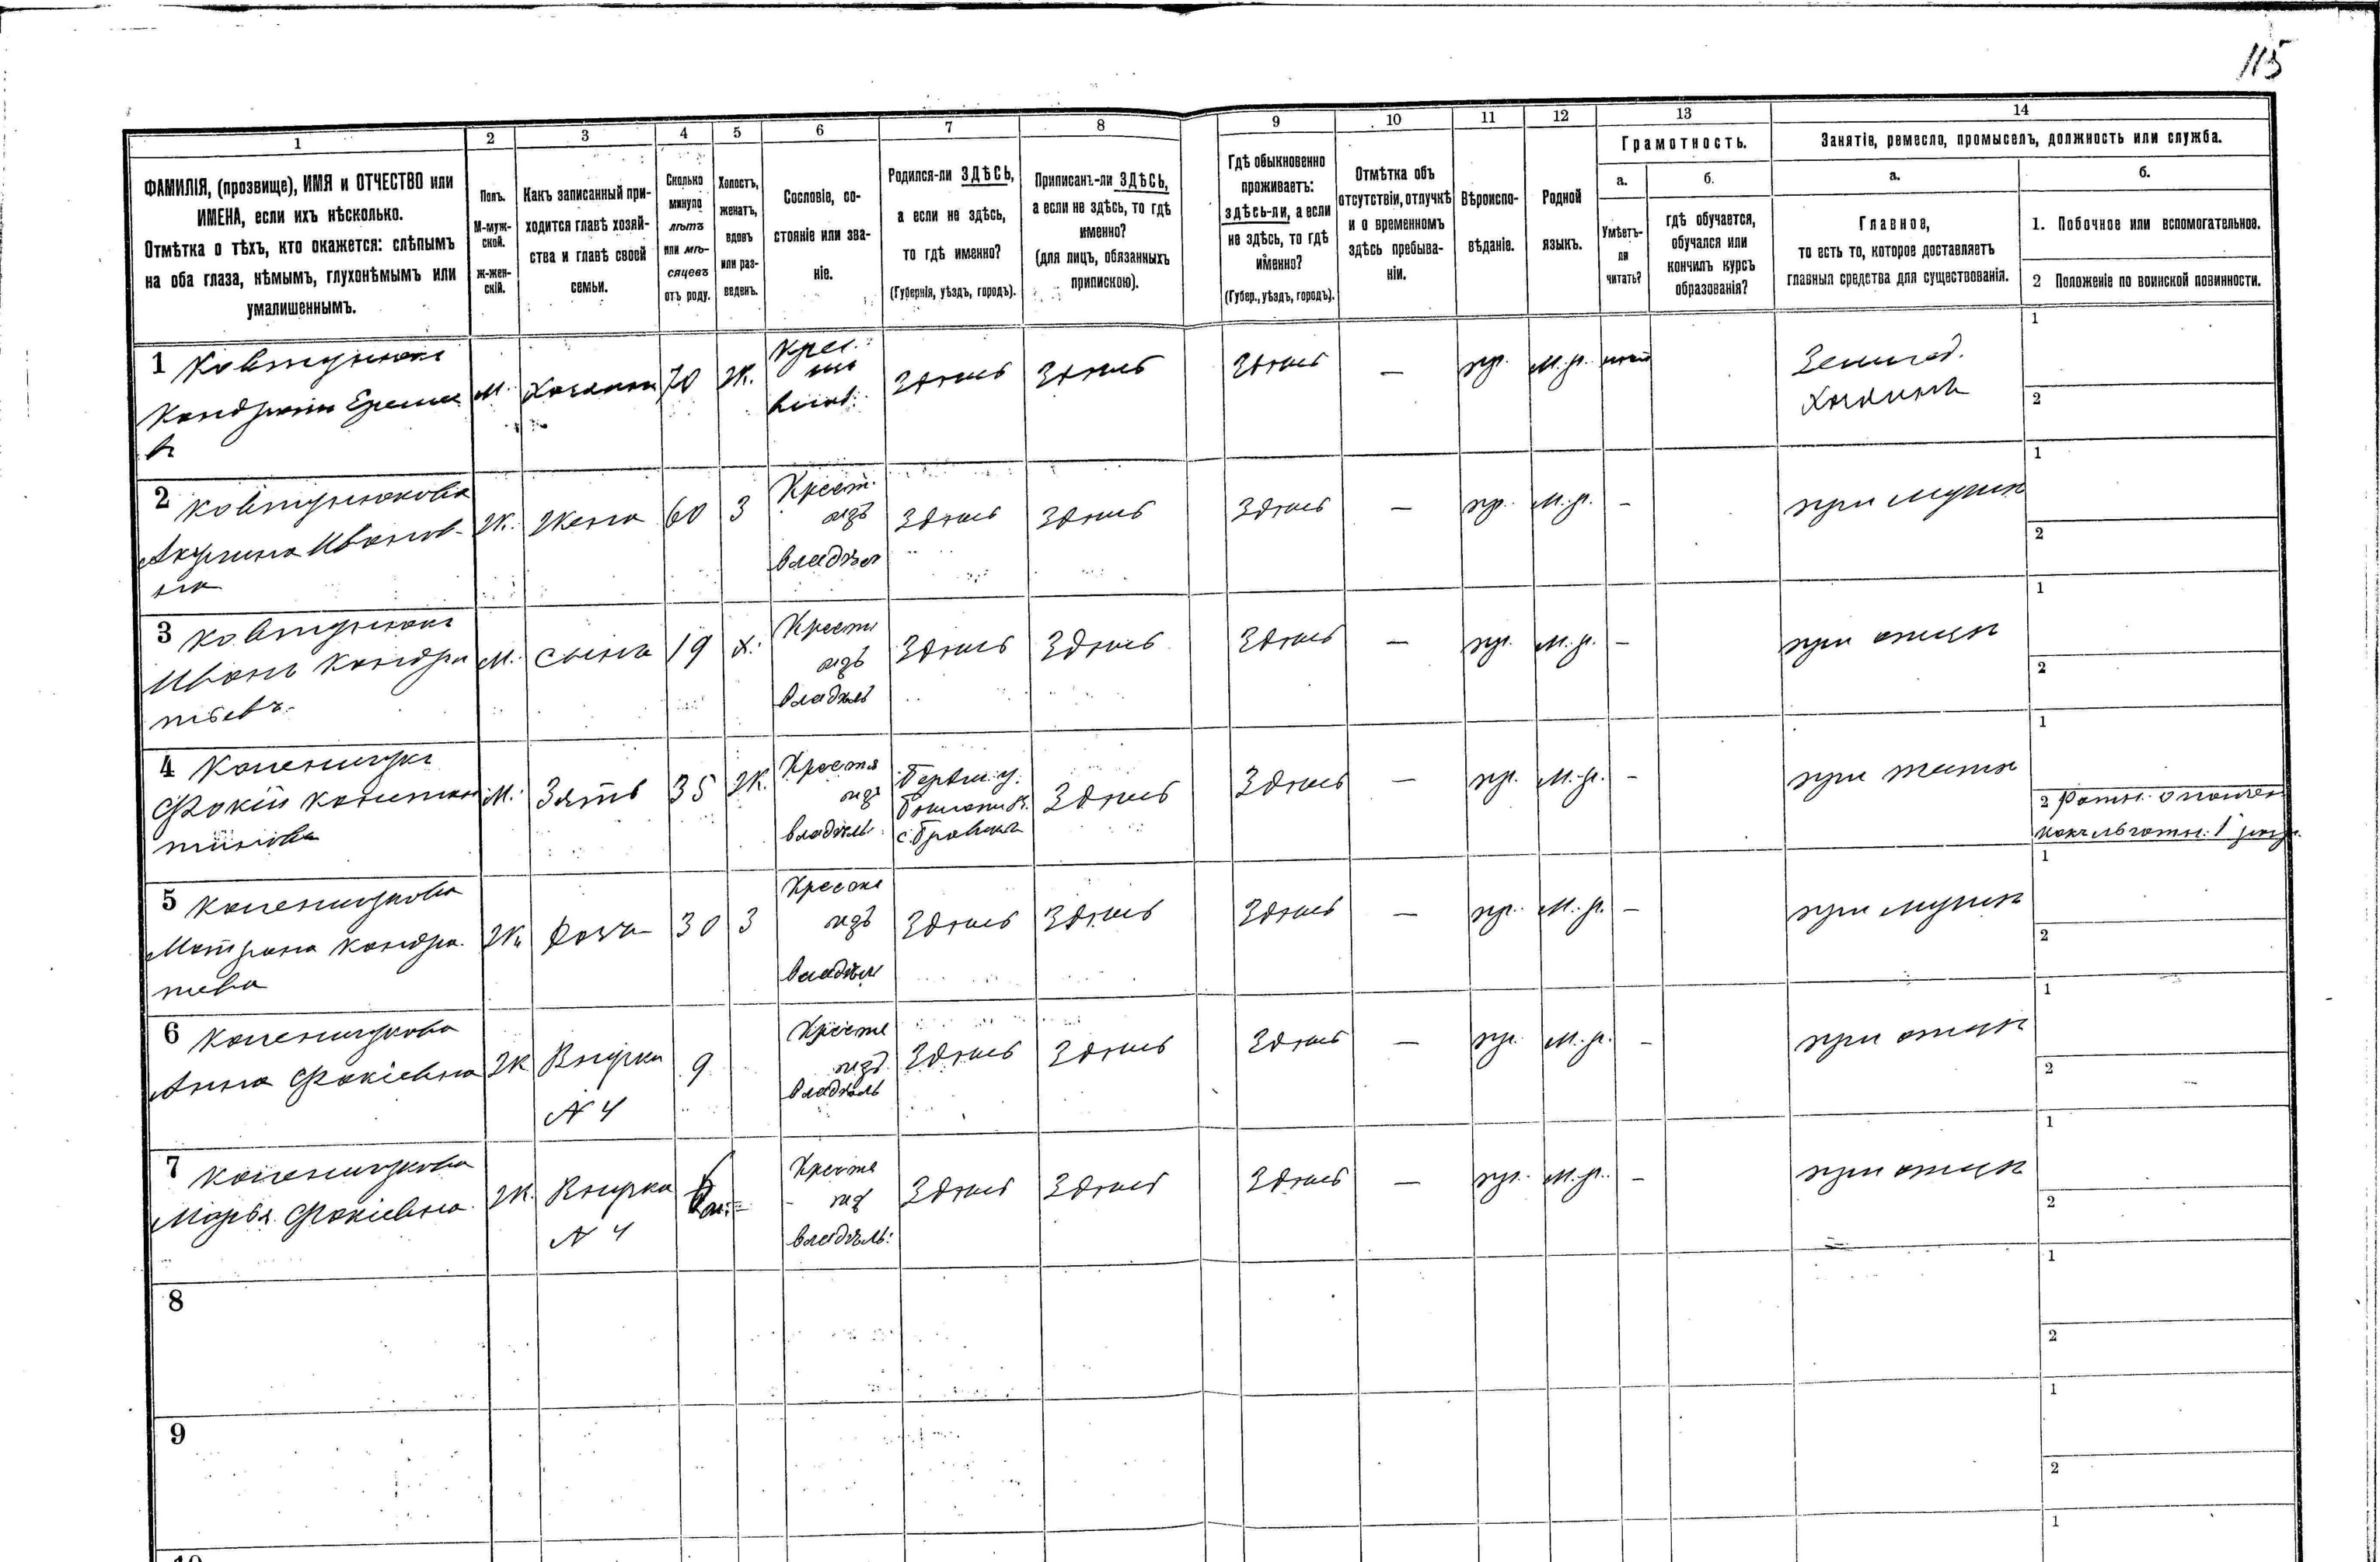 115
1
2
3
4
5
6
7
8
9
10
11
12
13
14
ФАМИЛІЯ, (прозвище), ИМЯ и ОТЧЕСТВО или
ИМЕНА, если ихъ нѣсколько.
Отмѣтка о тѣхъ, кто окажется: слѣпымъ
на оба глаза, нѣмымъ, глухонѣмымъ или
умалишеннымъ.
Полъ.
М-муж-
ской.
ж-жен-
скій.
Какъ записанный при-
ходится главѣ хозяй-
ства и главѣ своей
семьи.
Сколько
минуло
лѣтъ
или мѣ-
сяцевъ
отъ роду.
Холостъ,
женатъ,
вдовъ
или раз-
веденъ.
Сословіе, со-
стояніе или зва-
ніе.
Родился-ли ЗДѢСЬ,
а если не здѣсь,
то гдѣ именно?
(Губернія, уѣздъ, городъ).
Приписанъ-ли ЗДѢСЬ,
а если не здѣсь, то гдѣ
именно?
(для лицъ, обязанныхъ
припискою).
Гдѣ обыкновенно
проживаетъ:
здѣсь-ли, а если
не здѣсь, то гдѣ
именно?
(Губер., уѣздъ, городъ).
Отмѣтка объ
отсутствіи, отлучкѣ
и о временномъ
здѣсь пребыва-
ніи.
Вѣроиспо-
вѣданіе.
Родной
языкъ.
Грамотность.
а.
Умѣетъ-
ли
читать?
б.
гдѣ обучается,
обучался или
кончилъ курсъ
образованія?
Занятіе, ремесло, промыселъ, должность или служба.
а.
Главное,
то есть то, которое доставляетъ
главныя средства для существованія.
б.
1. Побочное или вспомогательное.
2 Положеніе по воинской повинности.
1 Ковтунюкъ
М. Хозяинъ 70 Ж. Здѣсь Здѣсь Здѣсь — пр. м.р. нѣтъ
Хозяинъ
1
2
2 Ковтунюкова
Акулина Иванов
на
Ж. Жена 60 З Крест.
изъ
владѣл
Здѣсь Здѣсь Здѣсь — пр. м.р. — при мужѣ
1
2
3 Ковтунюкъ
Иванъ Кондра
тьевъ.
М. сынъ 19 Х. Крестя
изъ
владѣль
Здѣсь Здѣсь Здѣсь — пр. м.р. — при отцѣ
1
2
4
Фокій
М. Зять 35 Ж. Крестя
изъ
владѣль
Здѣсь Здѣсь — пр. м.р. — при тестѣ
1
2
5
Матрона Кондра
тева
Ж. дочь 30 З
изъ
владѣл
Здѣсь Здѣсь Здѣсь — пр. м.р. — при мужѣ
1
2
6
Анна Фокіевна
Ж Внучка
№ 4
9 Крестя
изъ
владѣль
Здѣсь Здѣсь Здѣсь — пр. м.р. — при отцѣ
1
2
7
Марья Фокіевна
Ж. Внучка
№ 4
Крестя
изъ
владѣль.
Здѣсь Здѣсь Здѣсь — пр. м.р. — при отцѣ
1
2
8
1
2
9
1
2
10
1